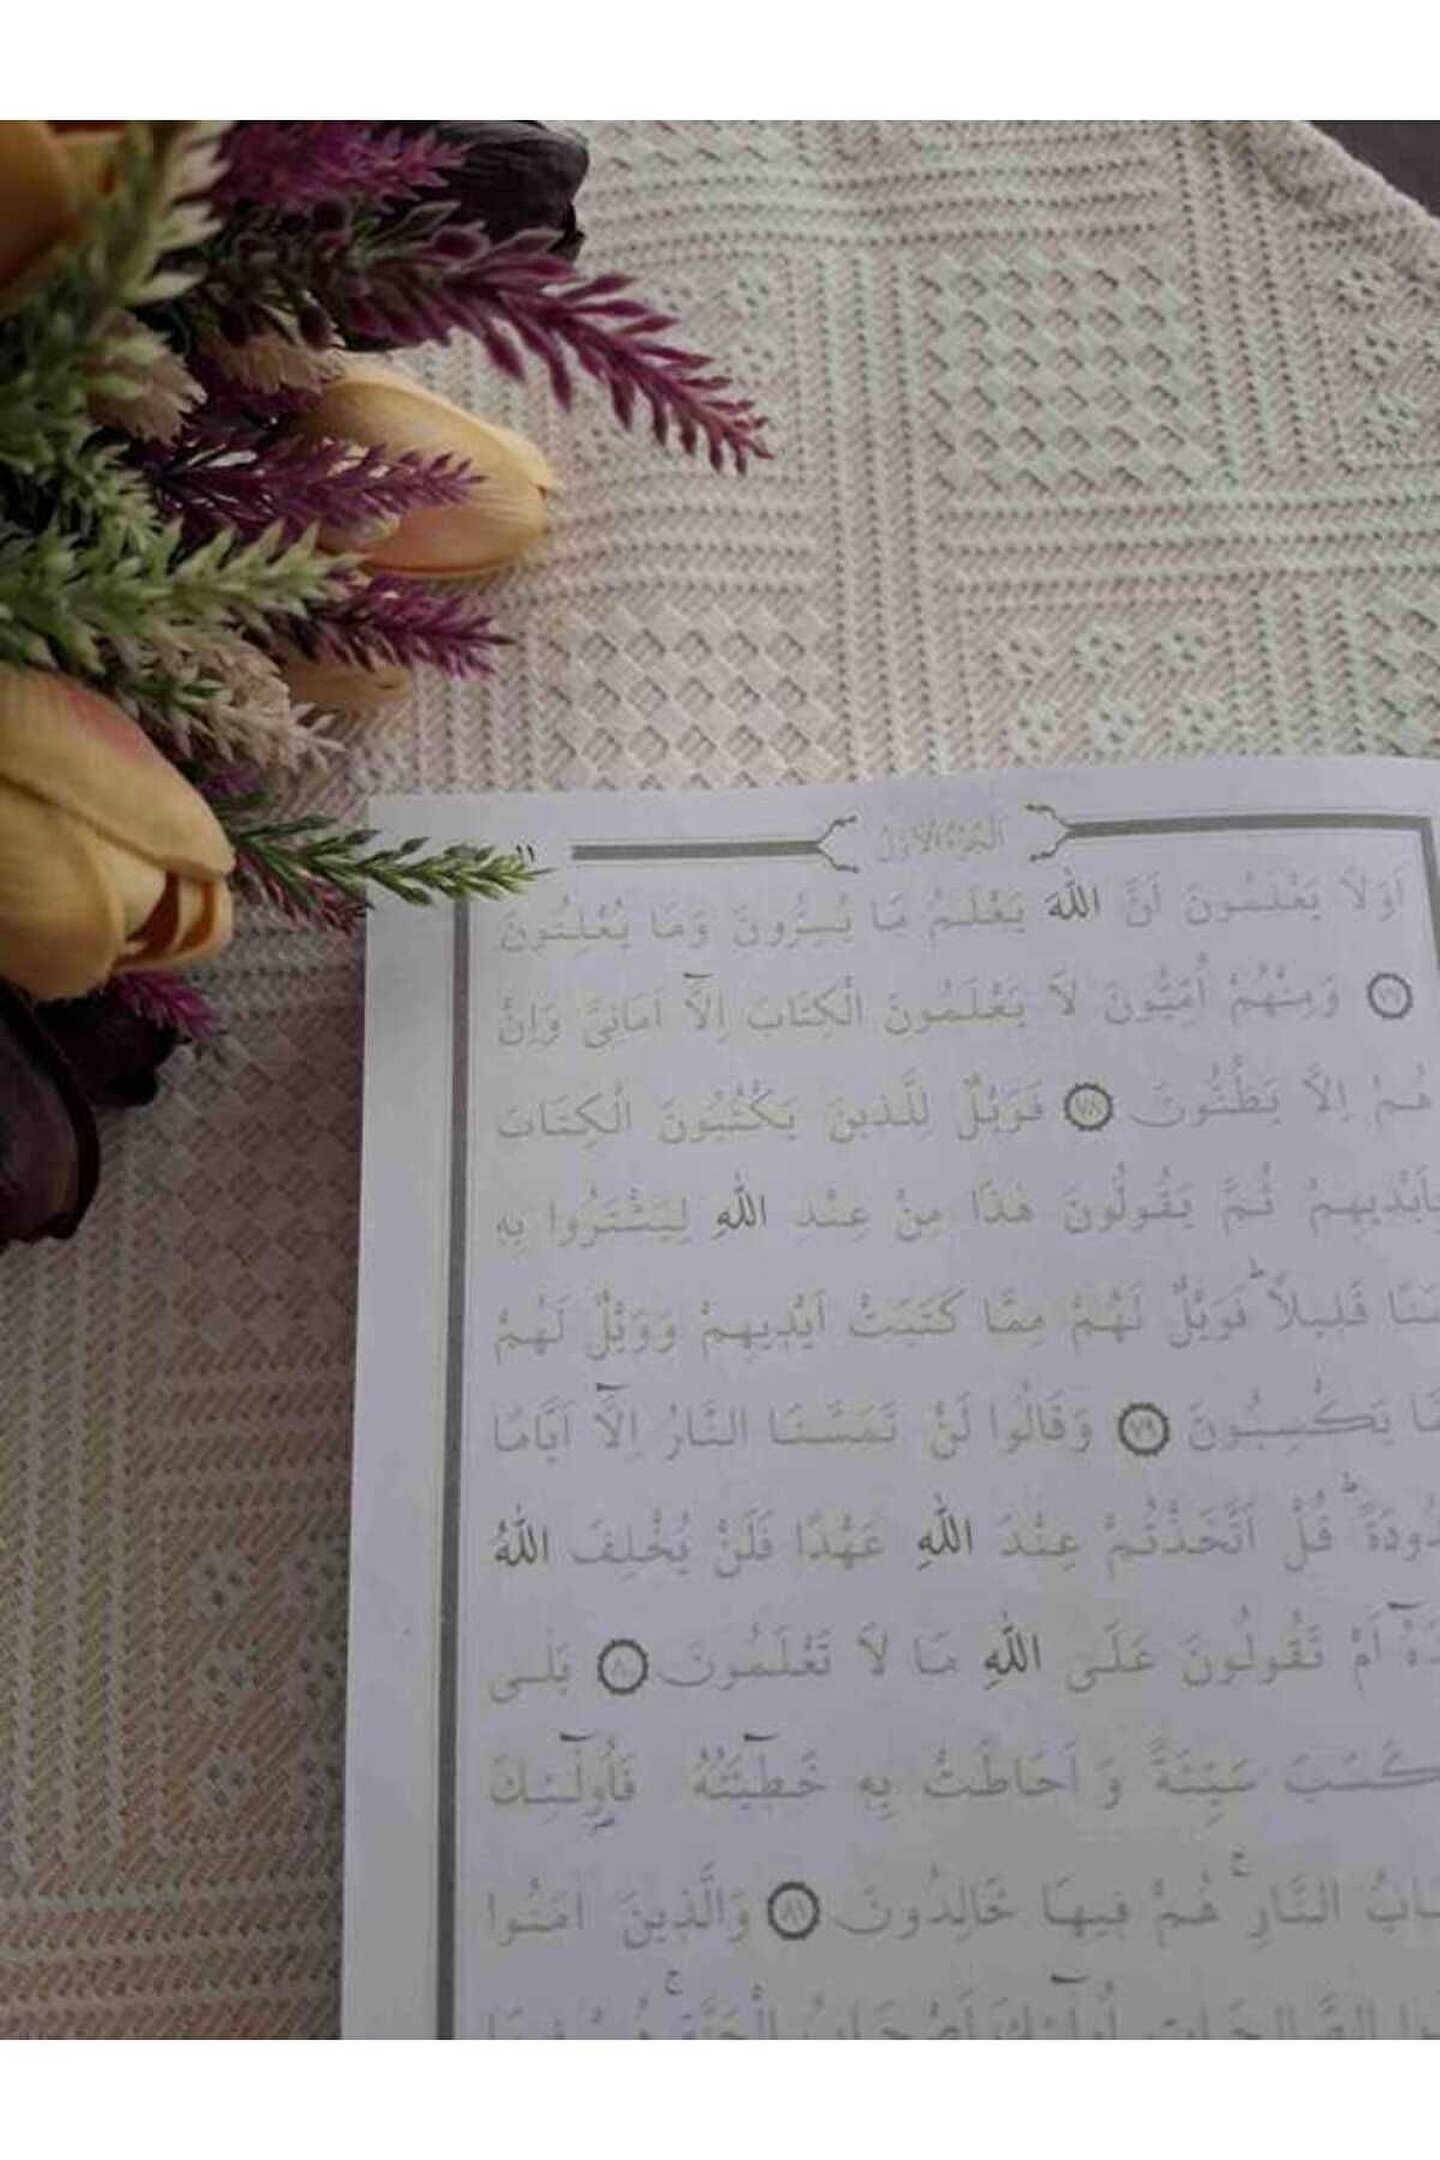 ١١
الجزء الاول
اَوَلَا يَعْلَمُونَ اَنَّ اللّٰهَ يَعْلَمُ مَا يُسِرُّونَ وَمَا يُعْلِنُونَ
﴿٧٧﴾ وَمِنْهُمْ اُمِّيُّونَ لَا يَعْلَمُونَ الْكِتَابَ اِلَّٓا اَمَانِىَّ وَاِنْ
هُمْ اِلَّا يَظُنُّونَ ﴿٧٨﴾ فَوَيْلٌ لِلَّذينَ يَكْتُبُونَ الْكِتَابَ
بِاَيْديهِمْ ثُمَّ يَقُولُونَ هٰذَا مِنْ عِنْدِ اللّٰهِ لِيَشْتَرُوا بِه
قَليلاًۜ فَوَيْلٌ لَهُمْ مِمَّا كَتَبَتْ اَيْديهِمْ وَوَيْلٌ لَهُمْ
يَكْسِبُونَ ﴿٧٩﴾ وَقَالُوا لَنْ تَمَسَّنَا النَّارُ اِلَّٓا اَيَّامًا
قُلْ اَتَّخَذْتُمْ عِنْدَ اللّٰهِ عَهْدًا فَلَنْ يُخْلِفَ اللّٰهُ
اَمْ تَقُولُونَ عَلَى اللّٰهِ مَا لَا تَعْلَمُونَ ﴿٨٠﴾ بَلٰى
كَسَبَ سَيِّئَةً وَاَحَاطَتْ بِه خَطيٓـَٔتُهُ فَاُو۬لٰٓئِكَ
النَّارِۚ هُمْ فيهَا خَالِدُونَ ﴿٨١﴾ وَالَّذينَ اٰمَنُوا
الصَّالِحَاتِ اُو۬لٰٓئِكَ اَصْحَابُ الْجَنَّةِۚ هُمْ فيهَا